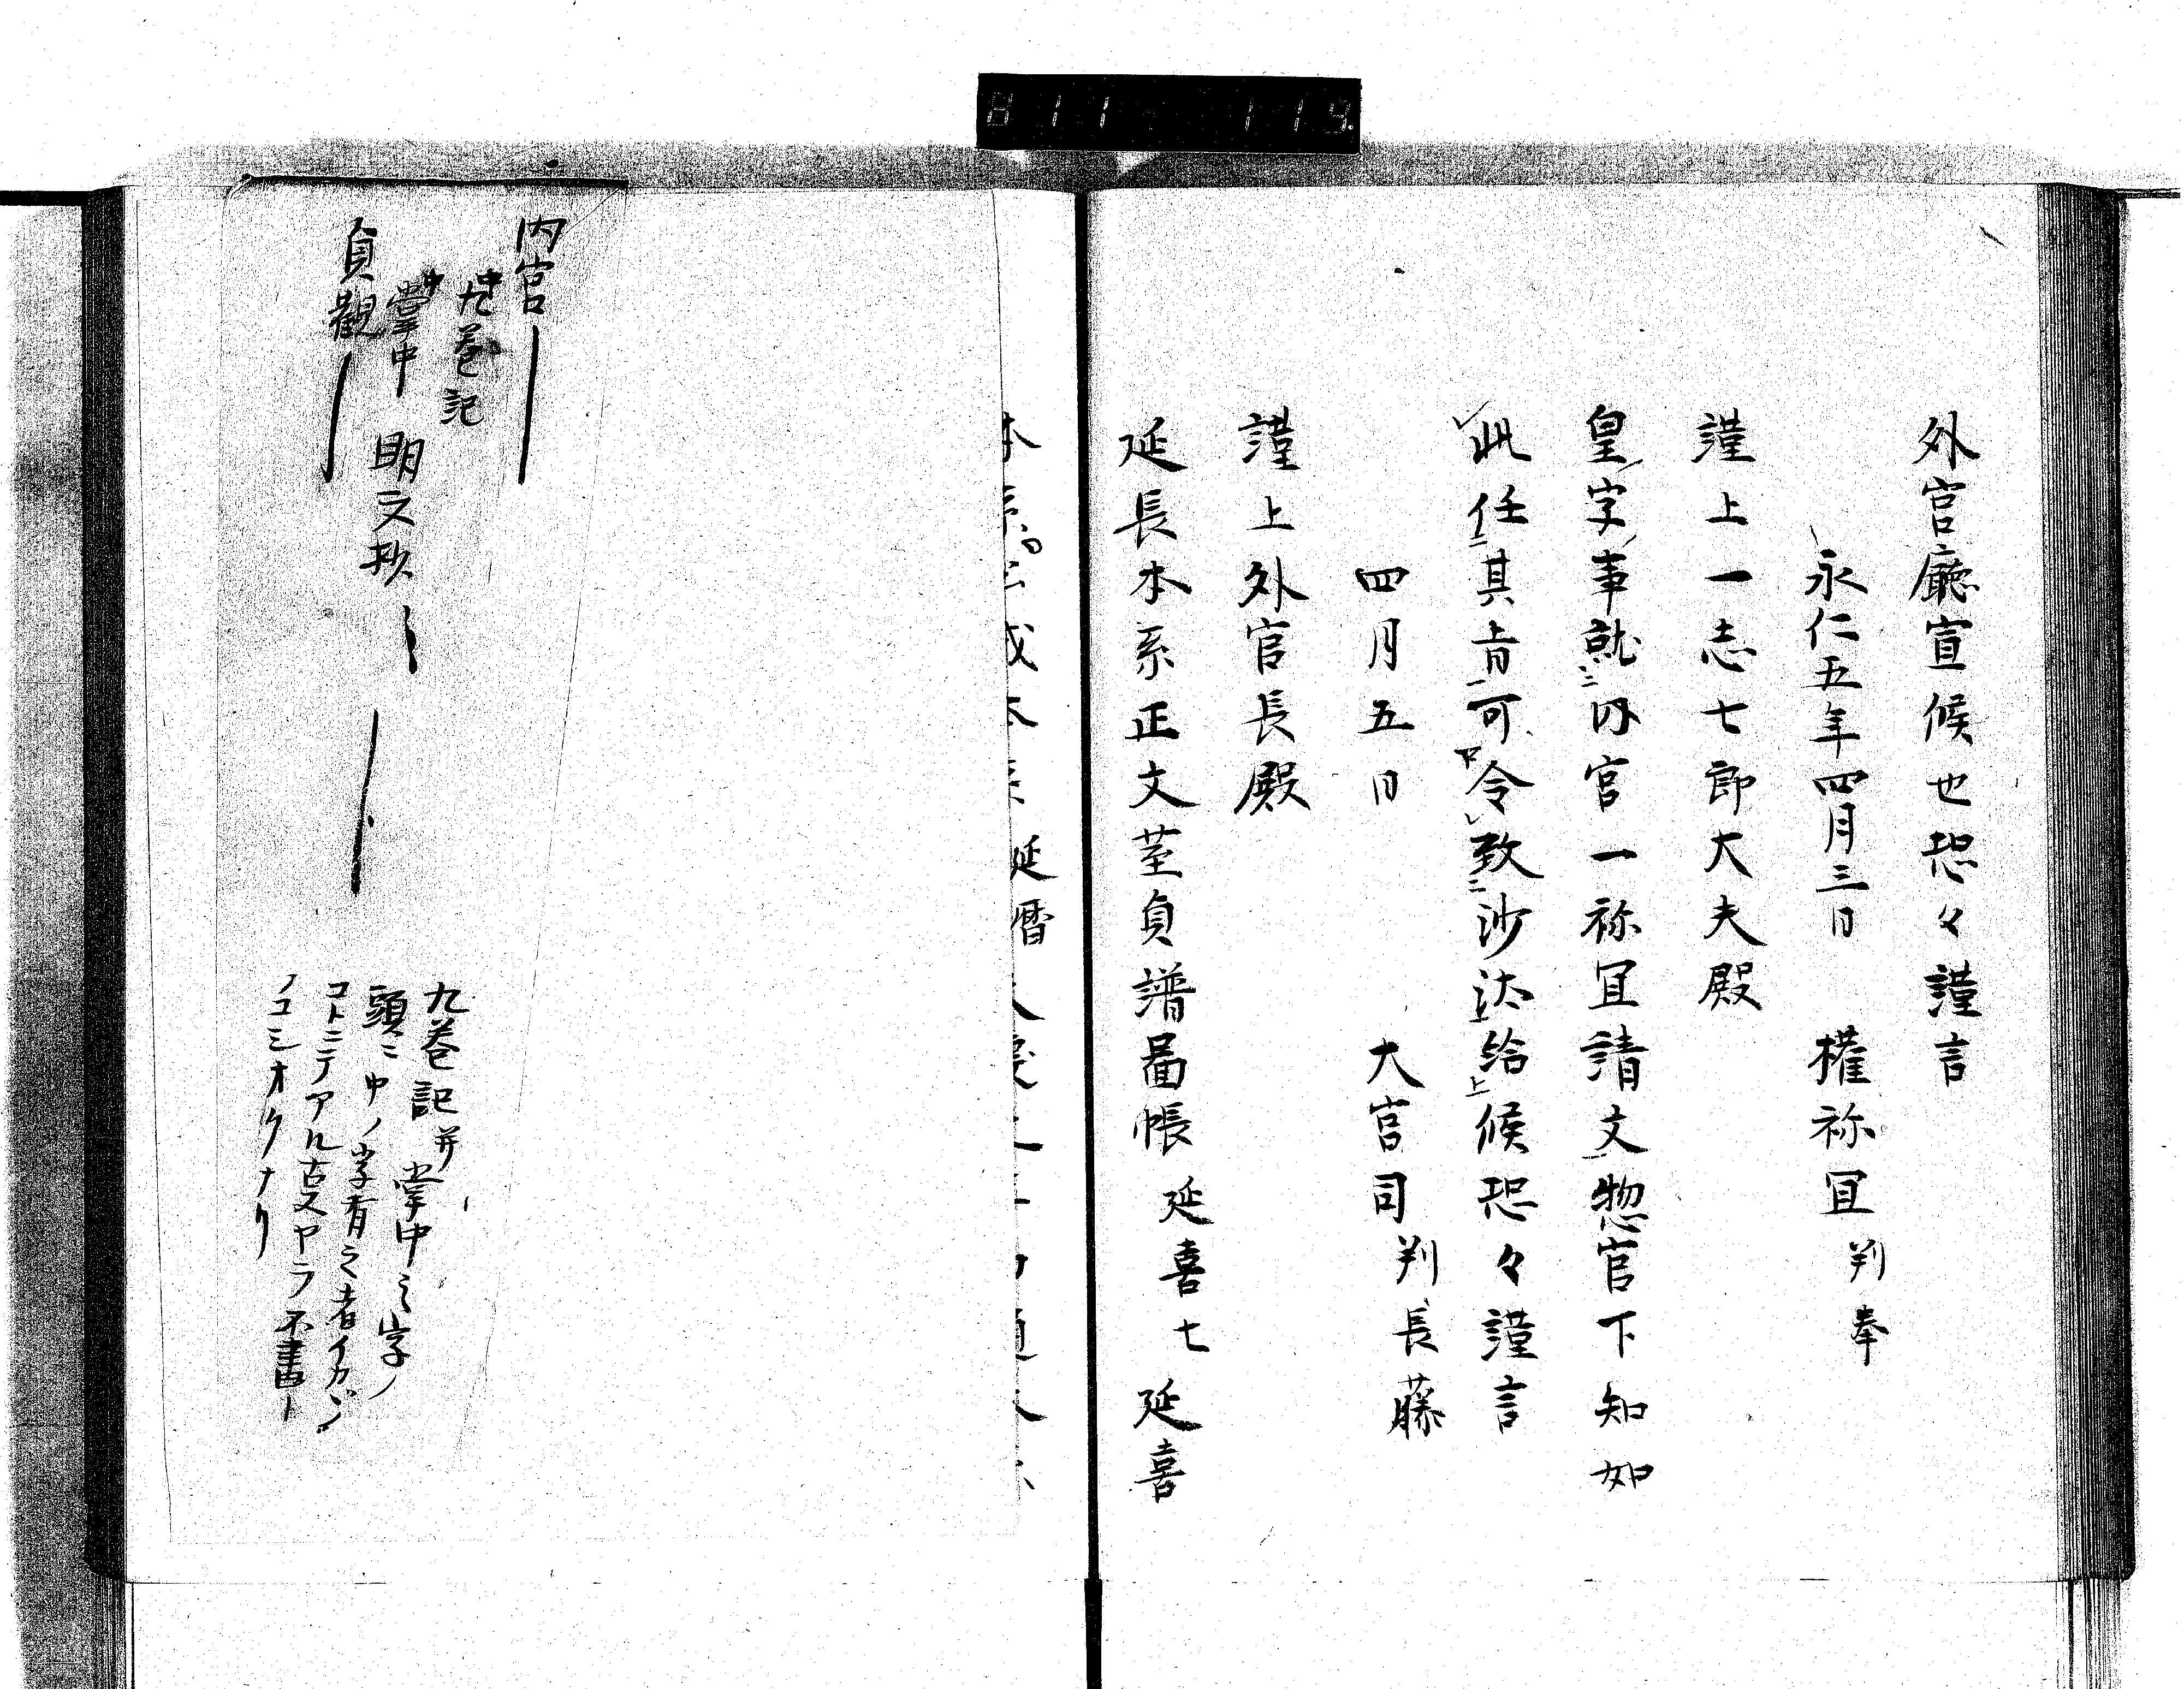 811 119
外宮廳宣候也恐々謹言
永仁五年四月三日 權祢冝判奉
謹上一志七郎大夫殿
皇字事就内宮一祢冝請文惣官下知如
此任其旨可令致沙汰給候恐々謹言
四月五日 大宮司判長藤
謹上外宮長殿
延長本系正文荃貞譜啚帳延喜七延喜
延暦
内宮
九巻記
掌中
明文抄
貞觀
九巻記并掌中之字ノ
頭ニ中ノ字有之者イカヾノ
コトニテアル古叓ヤラ不書ト
ノコシオクナリ